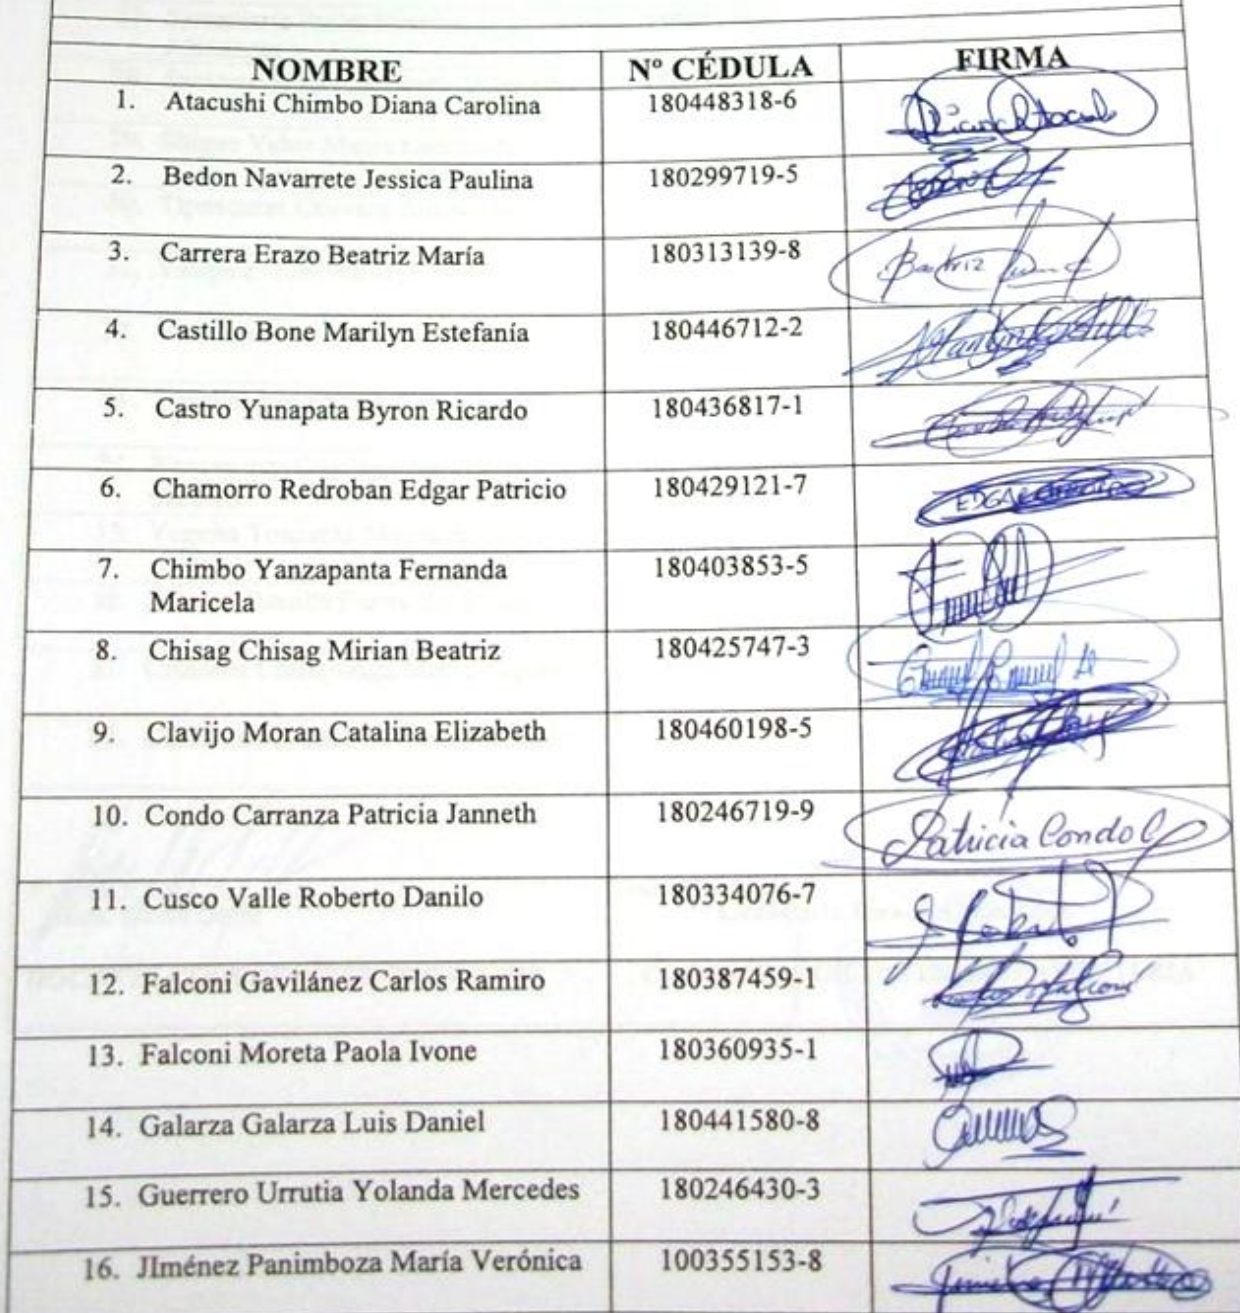 NOMBRE Nº CÉDULA FIRMA
1. Atacushi Chimbo Diana Carolina 180448318-6
2. Bedon Navarrete Jessica Paulina 180299719-5
3. Carrera Erazo Beatriz María 180313139-8 Beatriz
4. Castillo Bone Marilyn Estefanía 180446712-2
5. Castro Yunapata Byron Ricardo 180436817-1
6. Chamorro Redroban Edgar Patricio 180429121-7 EDGAR
7. Chimbo Yanzapanta Fernanda 180403853-5
Maricela
8. Chisag Chisag Mirian Beatriz 180425747-3
9. Clavijo Moran Catalina Elizabeth 180460198-5
10. Condo Carranza Patricia Janneth 180246719-9 Patricia Condo C
11. Cusco Valle Roberto Danilo 180334076-7
12. Falconi Gavilánez Carlos Ramiro 180387459-1
13. Falconi Moreta Paola Ivone 180360935-1
14. Galarza Galarza Luis Daniel 180441580-8
15. Guerrero Urrutia Yolanda Mercedes 180246430-3
16. JIménez Panimboza María Verónica 100355153-8